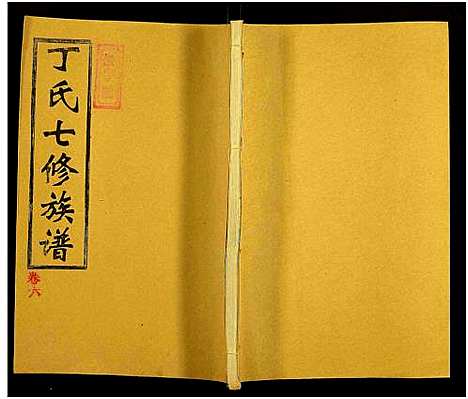 丁氏七修族谱
卷六